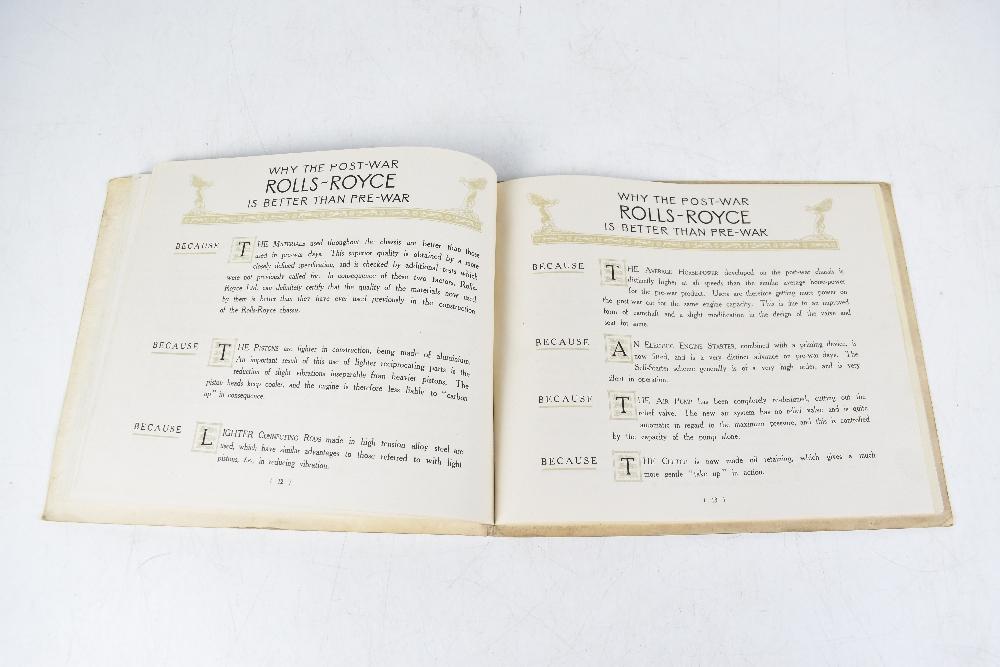 WHY THE POST-WAR
ROLLS-ROYCE
IS BETTER THAN PRE-WAR
BECAUSE
THE MATERIALS used throughout the chassis are better than those
used in pre-war days. This superior quality is obtained by a more
closely defined specification, and is checked by additional tests which
were not previously called for. In consequence of these two factors, Rolls-
Royce Ltd. can definitely certify that the quality of the materials now used
by them is better than they have ever used previously in the construction
of the Rolls-Royce chassis.
BECAUSE
THE PISTONS are lighter in construction, being made of aluminium.
An important result of this use of lighter reciprocating parts is the
reduction of slight vibrations inseparable from heavier pistons. The
piston heads keep cooler, and the engine is therefore less liable to "carbon
up" in consequence.
BECAUSE
LIGHTER CONNECTING RODS made in high tension alloy steel are
used, which have similar advantages to those referred to with light
pistons, i.e. in reducing vibration.
( 12 )
WHY THE POST-WAR
ROLLS-ROYCE
IS BETTER THAN PRE-WAR
BECAUSE
THE AVERAGE HORSE-POWER developed on the post-war chassis is
distinctly higher at all speeds than the similar average horse-power
for the pre-war product. Users are therefore getting more power on
the post-war car for the same engine capacity. This is due to an improved
form of camshaft and a slight modification in the design of the valve and
seat for same.
BECAUSE
AN ELECTRIC ENGINE STARTER, combined with a priming device, is
now fitted, and is a very distinct advance on pre-war days. The
Self-Starter scheme generally is of a very high order, and is very
silent in operation.
BECAUSE
THE AIR PUMP has been completely re-designed, cutting out the
relief valve. The new air system has no relief valve and is quite
automatic in regard to the maximum pressure, and this is controlled
by the capacity of the pump alone.
BECAUSE
THE CLUTCH is now made oil retaining, which gives a much
more gentle "take up" in action.
( 13 )